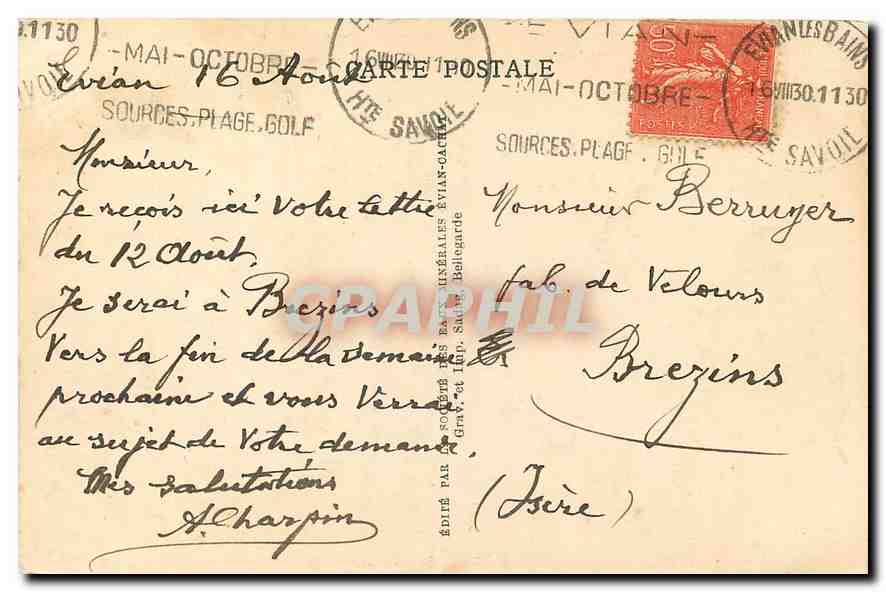 CARTE POSTALE
Evian 16 Août
Monsieur,
Je reçois ici votre lettre
du 12 Août.
Je serai à Brezins
Vers la fin de la semaine
prochaine et vous verrai
au sujet de votre demande.
Mes salutations
A. Charpin
ÉDITÉ PAR LA SOCIÉTÉ DES EAUX MINÉRALES ÉVIAN-CACHAT
Grav. et Imp. Sadag, Bellegarde
Monsieur Berruyer
fab. de Velours
Brezins
(Isère)
-MAI-OCTOBRE-
SOURCES.PLAGE.GOLF
16 VIII 30 . 11
HTE SAVOIE
-MAI-OCTOBRE-
SOURCES.PLAGE.GOLF
EVIAN LES BAINS
16 VIII 30.11 30
HTE SAVOIE
50
POSTES
CPAPHIL